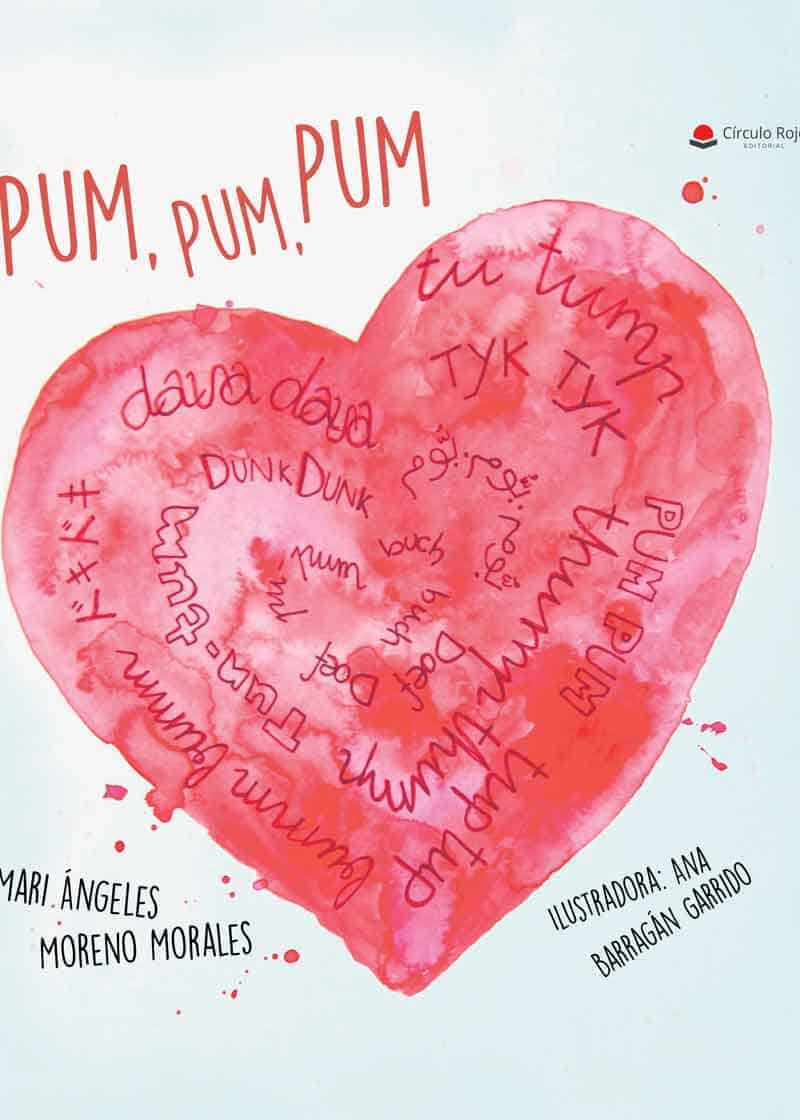 PUM, PUM, PUM
Círculo Rojo
EDITORIAL
tu tump
TYK TYK
dava dava
DUNK DUNK
ドキドキ
pum
buch
buch
Doef
Doef
PUM PUM
thump thump
tup tup
bumm bumm
MARI ÁNGELES
MORENO MORALES
ILUSTRADORA: ANA
BARRAGÁN GARRIDO